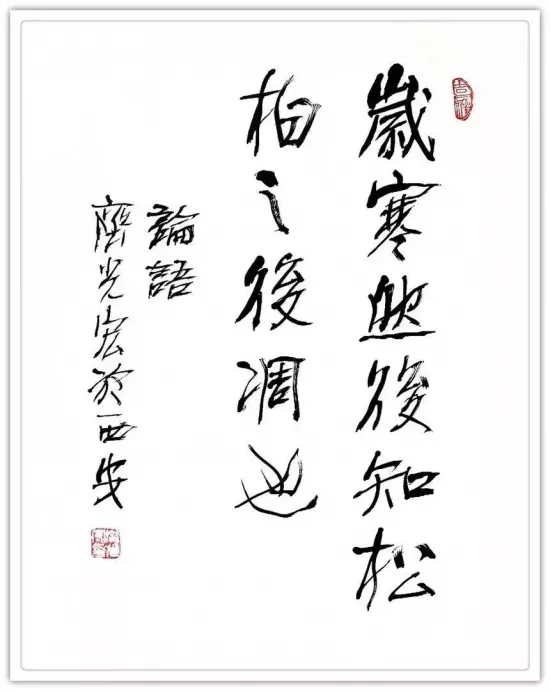 歲寒然後知松
柏之後凋也
論語
齊光宏於西安